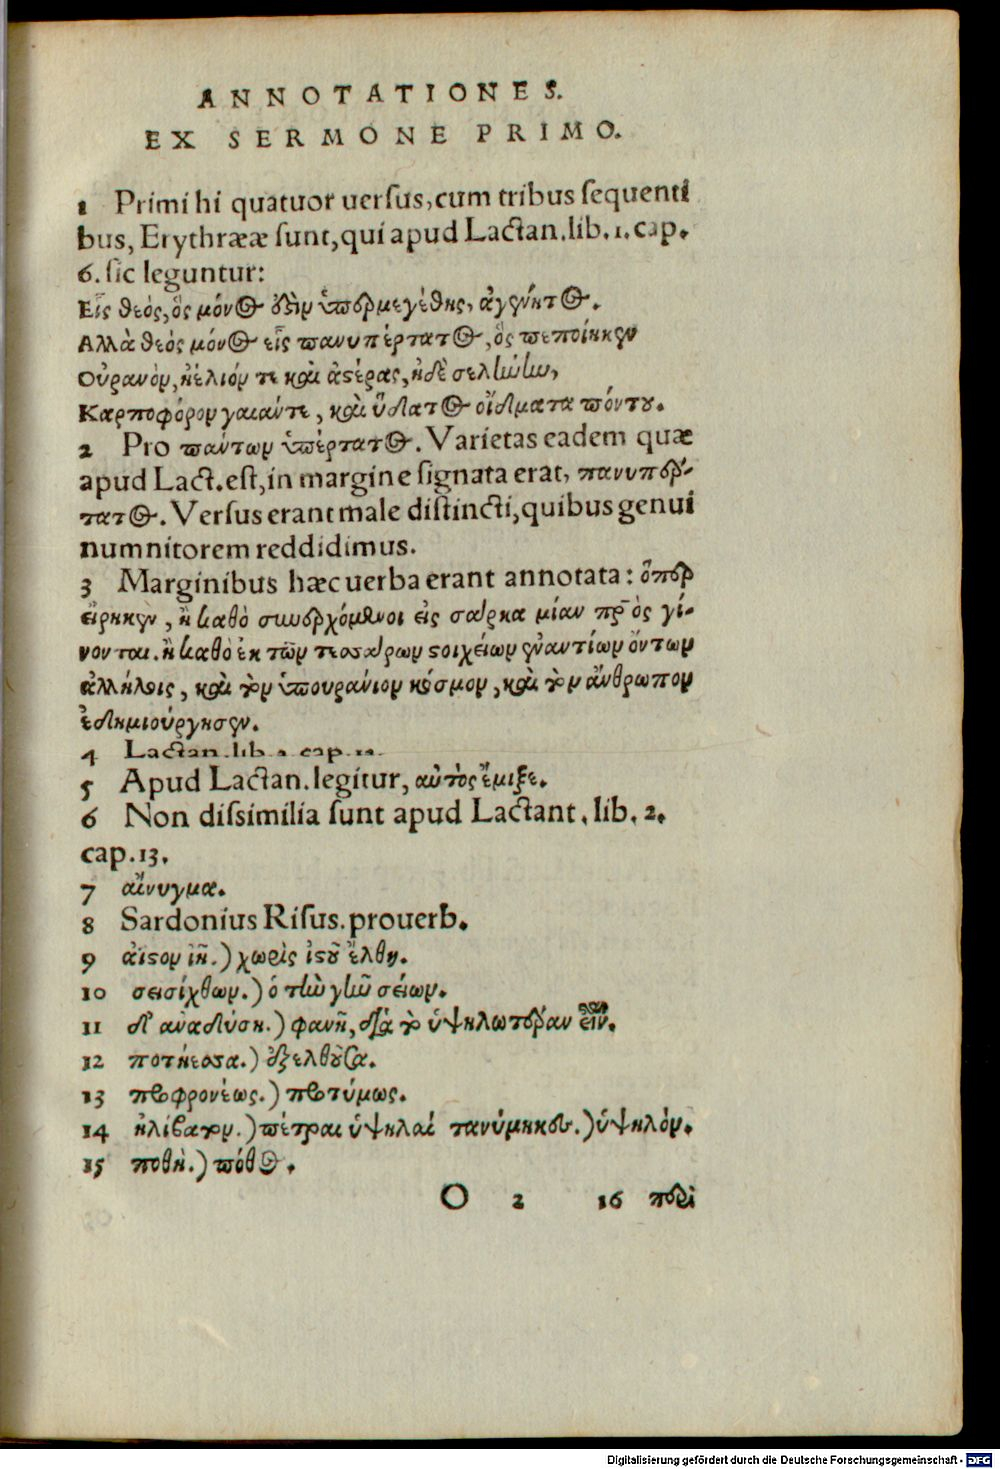 ANNOTATIONES.
EX SERMONE PRIMO.
1 Primi hi quatuor uersus, cum tribus sequenti
bus, Erythrææ sunt, qui apud Lactan. lib. 1. cap.
6. sic leguntur:
Εἷς θεός, ὃς μόνος ὑπερμεγέθης, ἀγένητος.
Αλλὰ θεός μόνος εἷς πανυπέρτατος, ὃς πεποίηκεν
Οὐρανὸν, ἠέλιόν τε καὶ ἀστέρας, ἠδὲ σελήνην,
Καρποφόρον γαιάντε, καὶ ὕδατος οἴδματα πόντου.
2 Pro πάντων ὑπέρτατος. Varietas eadem quæ
apud Lact. est, in margine signata erat, πανυπέρ-
τατος. Versus erant male distincti, quibus genui
num nitorem reddidimus.
3 Marginibus hæc uerba erant annotata: ὅπερ
εἴρηκεν, ἢ καθὸ συνερχόμενοι εἰς σάρκα μίαν πρὸς γί-
νονται. ἢ καθὸ ἐκ τῶν τεσσάρων στοιχείων ἐναντίων ὄντων
ἀλλήλοις, καὶ τὸν ὑπουράνιον κόσμον, καὶ τὸν ἄνθρωπον
ἐδημιούργησεν.
4 Lactan. lib. 2. cap. 12.
5 Apud Lactan. legitur, αὐτὸς ἔμιξε.
6 Non dissimilia sunt apud Lactant. lib. 2.
cap. 13.
7 αἴνυγμα.
8 Sardonius Risus. prouerb.
9 ἄϊστον) χωρὶς ἱστοῦ ἔλθῃ.
10 σεισίχθων.) ὁ τὴν γῆν σείων.
11 δι' ἀναδύσῃ.) φανῇ, διὰ τὸ ὑψηλωτέραν εἶν.
12 ποτήεσσα.) ἐξελθοῦσα.
13 προφρονέως.) προτύμως.
14 ἠλίβατον.) πέτραι ὑψηλαί τανύμηκες.) ὑψηλόν.
15 ποθή.) πόθος.
O 2 16 περὶ
Digitalisierung gefördert durch die Deutsche Forschungsgemeinschaft - DFG